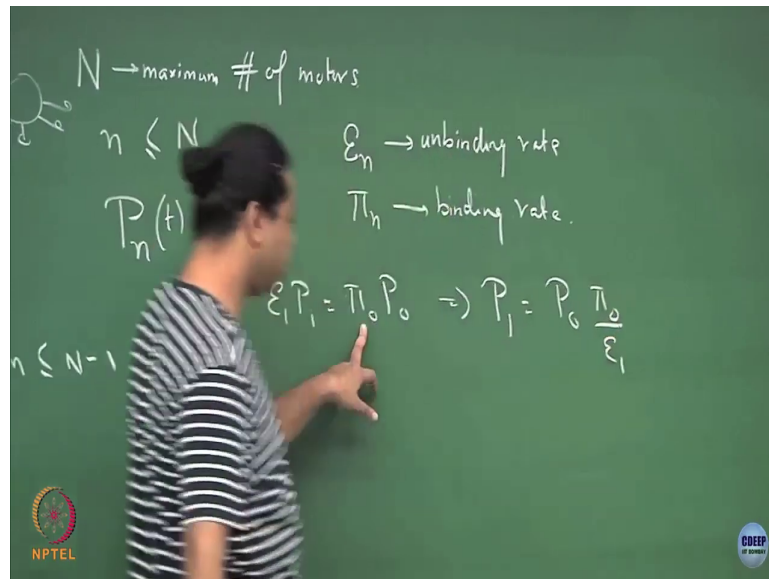 N → maximum # of motors.
n ≤ N
εₙ → unbinding rate
Pₙ(t)
πₙ → binding rate.
ε₁P₁ = π₀P₀ => P₁ = P₀ π₀/ε₁
n ≤ N-1
NPTEL
CDEEP
IIT BOMBAY